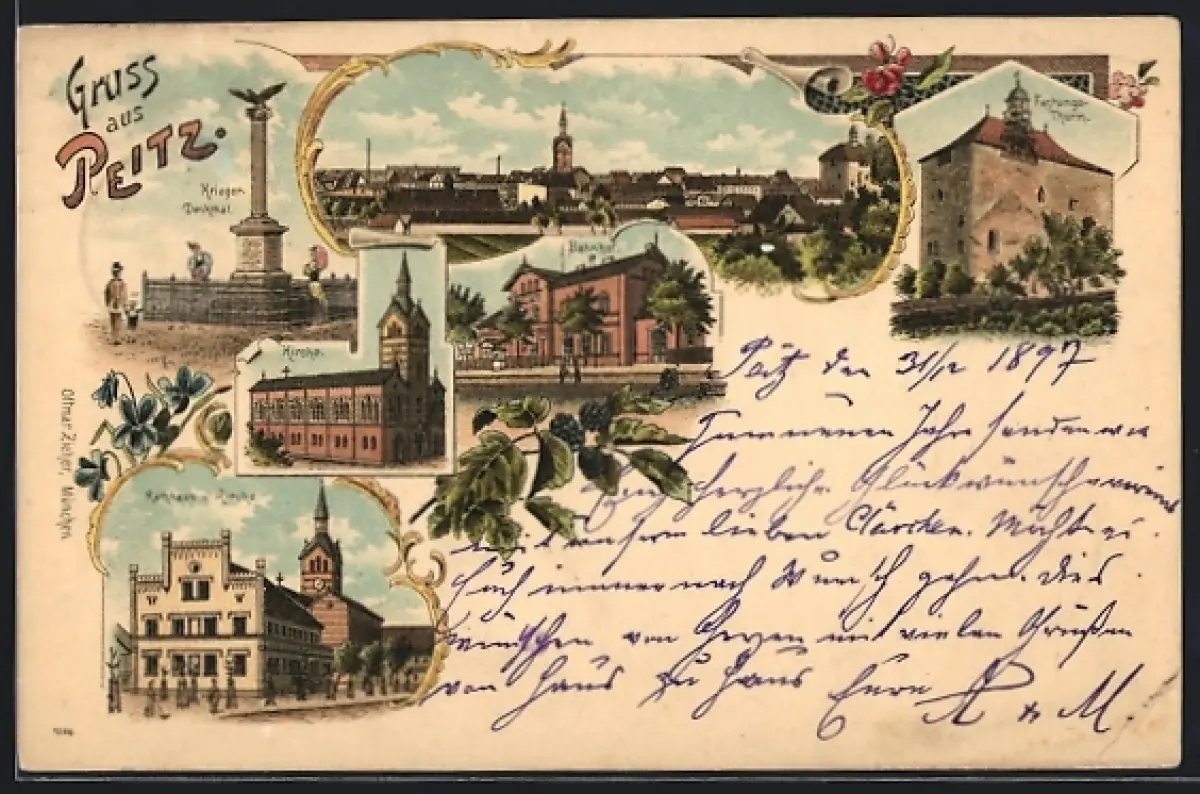 Gruss
aus
PEITZ.
Krieger
Denkmal.
Festungs-
Thurm.
Bahnhof.
Kirche.
Rathhaus u. Kirche
Ottmar Zieher, München
Peitz den 31/12 1897
Zum neuen Jahre senden wir
Euch herzliche Glückwünsche
mit unserm lieben Möchte es
Euch immer nach Wunsch gehn. Dies
wünschen von Herzen mit vielen Grüßen
von Haus zu Haus Eure A & M.